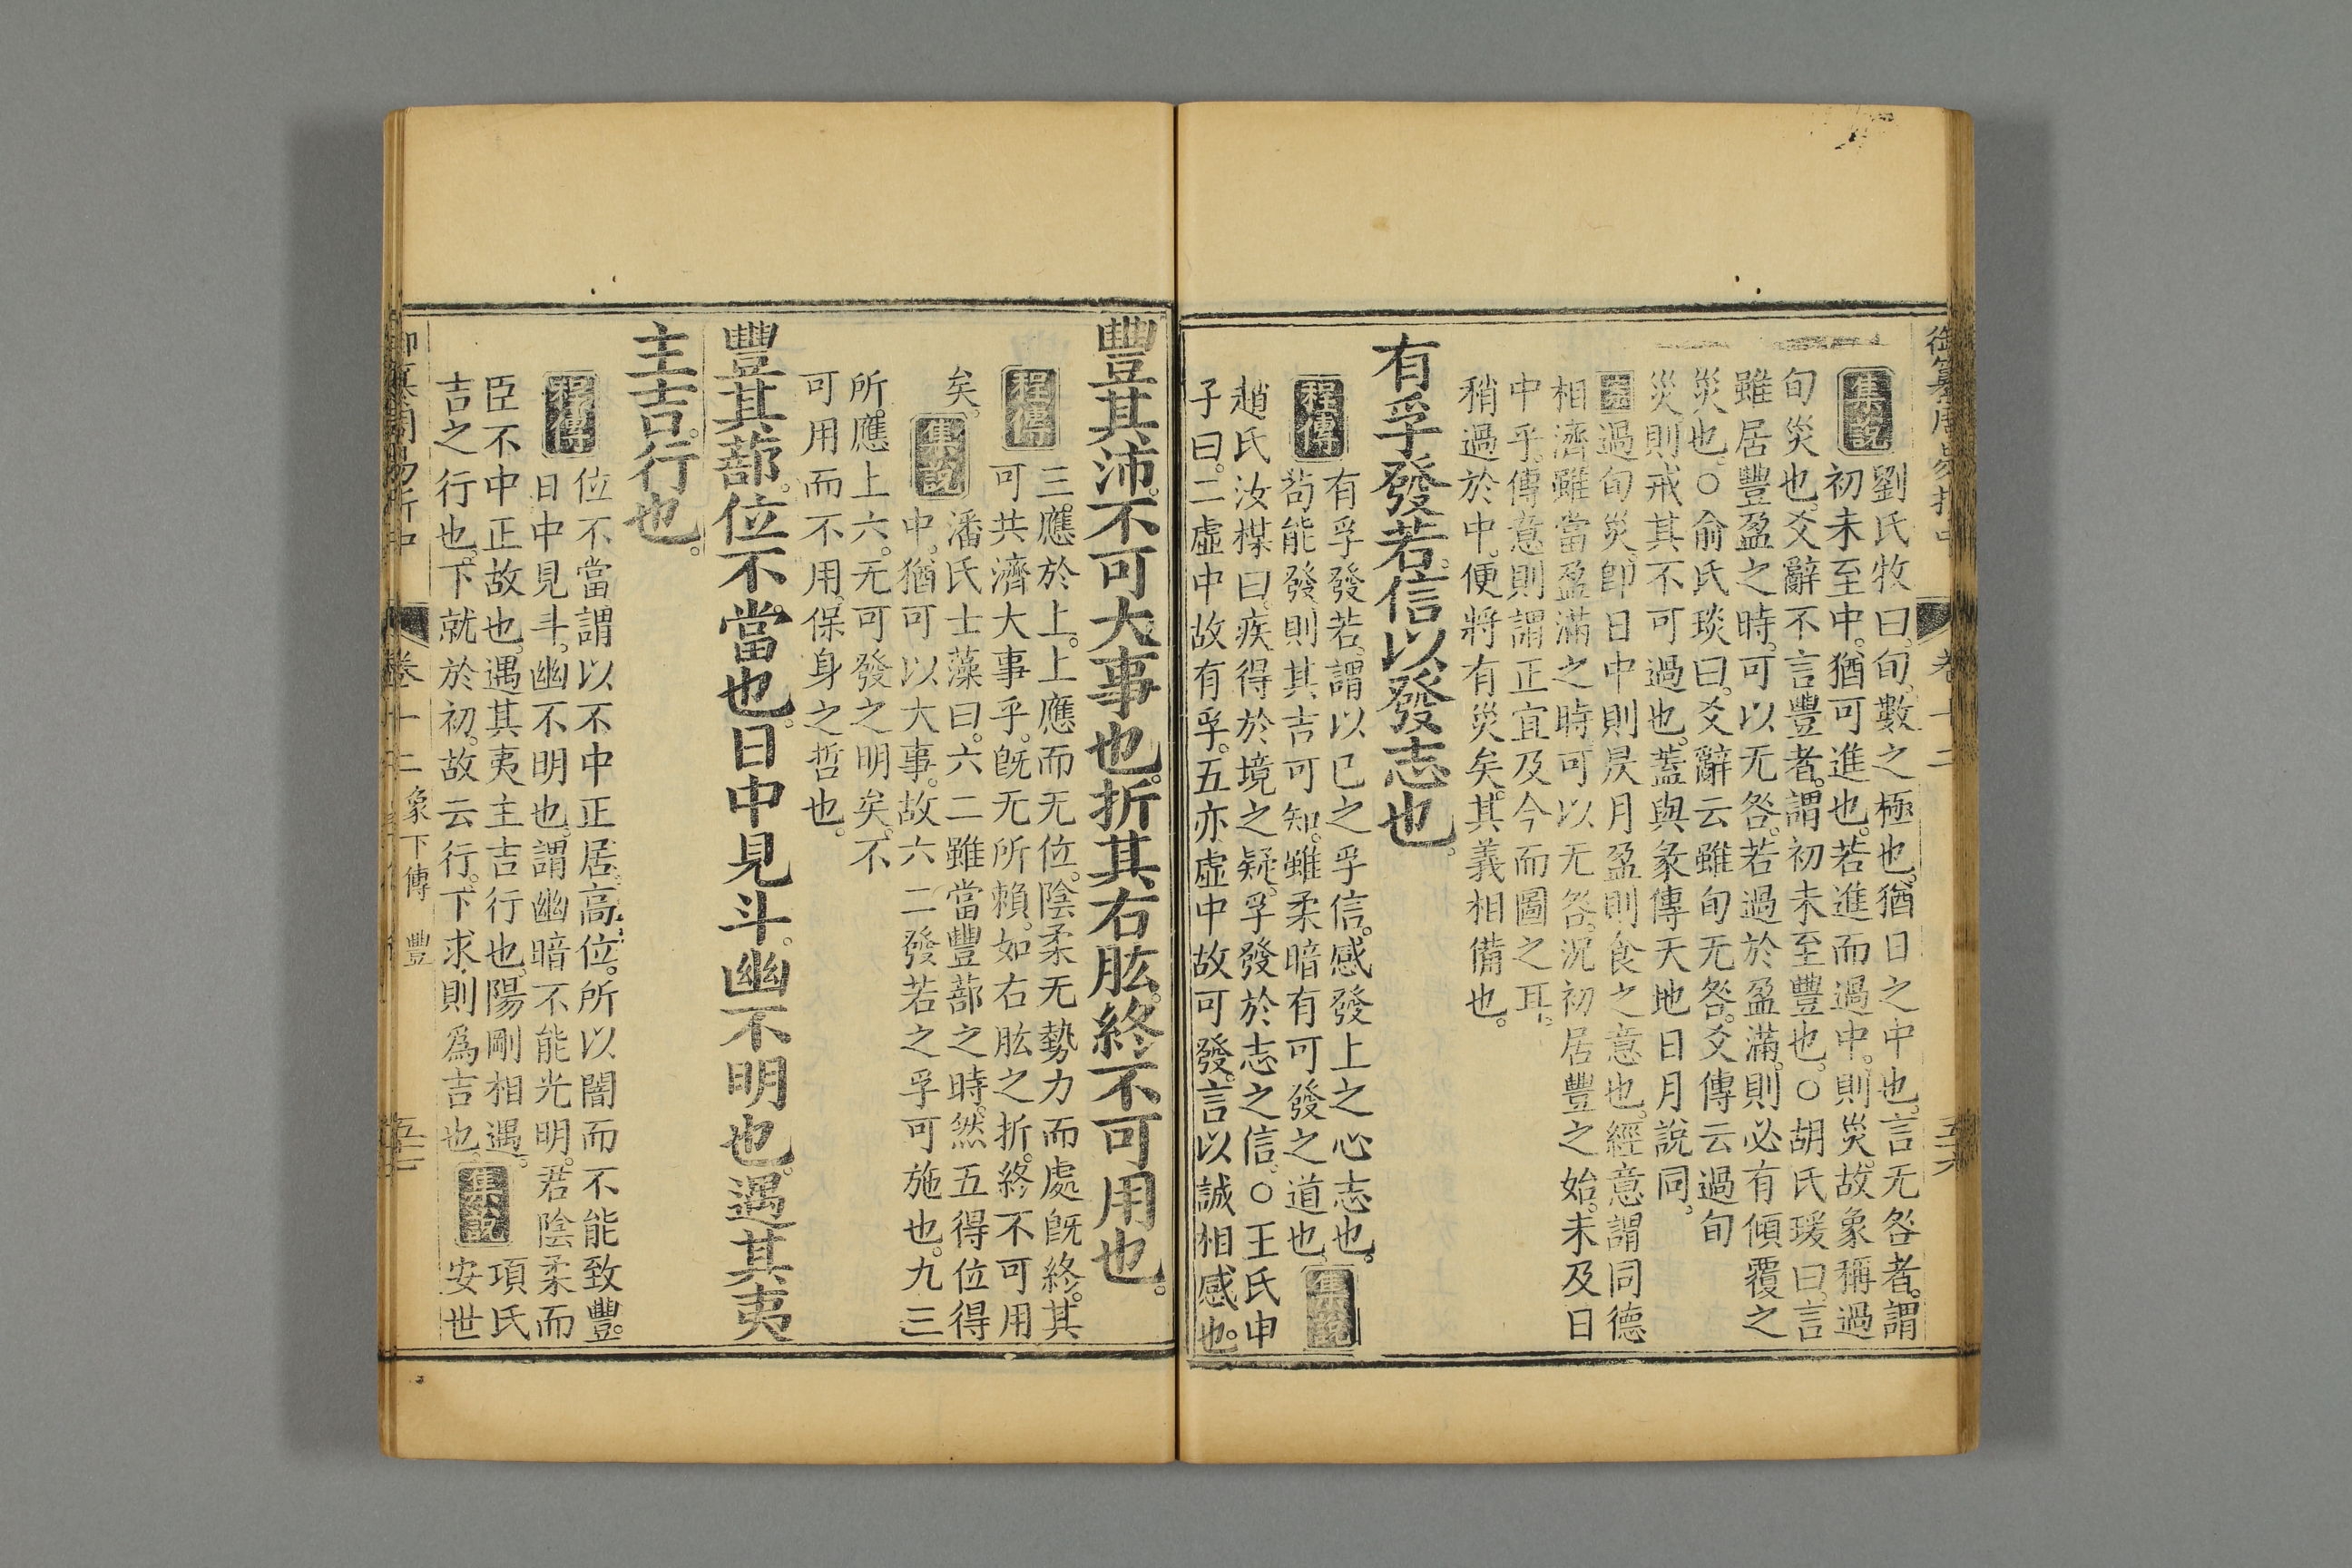 御纂周易折中
卷十二
五六
集說
劉氏牧曰。旬。數之極也。猶日之中也。言无咎者。謂
初未至中。猶可進也。若進而過中。則災。故象稱過
旬災也。爻辭不言豐者。謂初未至豐也。○胡氏瑗曰。言
雖居豐盈之時。可以无咎。若過於盈滿。則必有傾覆之
災也。○俞氏琰曰。爻辭云雖旬无咎。爻傳云過旬
災則戒其不可過也。蓋與彖傳天地日月說同。
案過旬災。卽日中則昃月盈則食之意也。經意謂同德
相濟雖當盈滿之時可以无咎。況初居豐之始。未及日
中乎。傳意則謂正宜及今而圖之耳。
稍過於中。便將有災矣。其義相備也。
有孚發若。信以發志也。
程傳
有孚發若。謂以已之孚信。感發上之心志也。
苟能發則其吉可知。雖柔暗有可發之道也。
集說
趙氏汝楳曰。疾得於境之疑。孚發於志之信。○王氏申
子曰。二虛中故有孚。五亦虛中故可發。言以誠相感也。
豐其沛。不可大事也。折其右肱。終不可用也。
程傳
三應於上。上應而无位。陰柔无勢力而處旣終。其
可共濟大事乎。旣无所賴。如右肱之折。終不可用
矣。
集說
潘氏士藻曰。六二雖當豐蔀之時。然五得位得
中。猶可以大事。故六二發若之孚可施也。九三
所應上六。无可發之明矣。不
可用而不用。保身之哲也。
豐其蔀。位不當也。日中見斗。幽不明也。遇其夷
主吉。行也。
程傳
位不當謂以不中正居高位。所以闇而不能致豐。
日中見斗。幽不明也。謂幽暗不能光明。君陰柔而
臣不中正故也。遇其夷主吉行也。陽剛相遇。
吉之行也。下就於初。故云行。下求則爲吉也。
集說
項氏
安世
御纂周易折中
卷十二
象下傳
豐